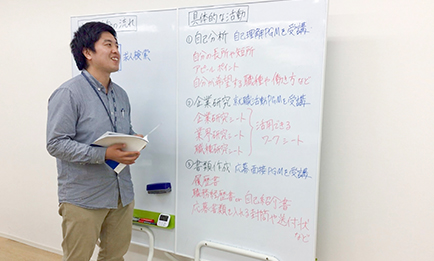 の流れ
求人検索
具体的な活動
①自己分析 自己理解PGMを受講
自分の長所や短所
アピールポイント
自分が希望する職種や働き方など
②企業研究 就職活動PGMを受講
企業研究シート
業界研究シート
職種研究シート
活用できる
ワークシート
③書類作成 応募・面接PGMを受講
履歴書
職務経歴書or自己紹介書
応募書類を入れる封筒や送付状
など